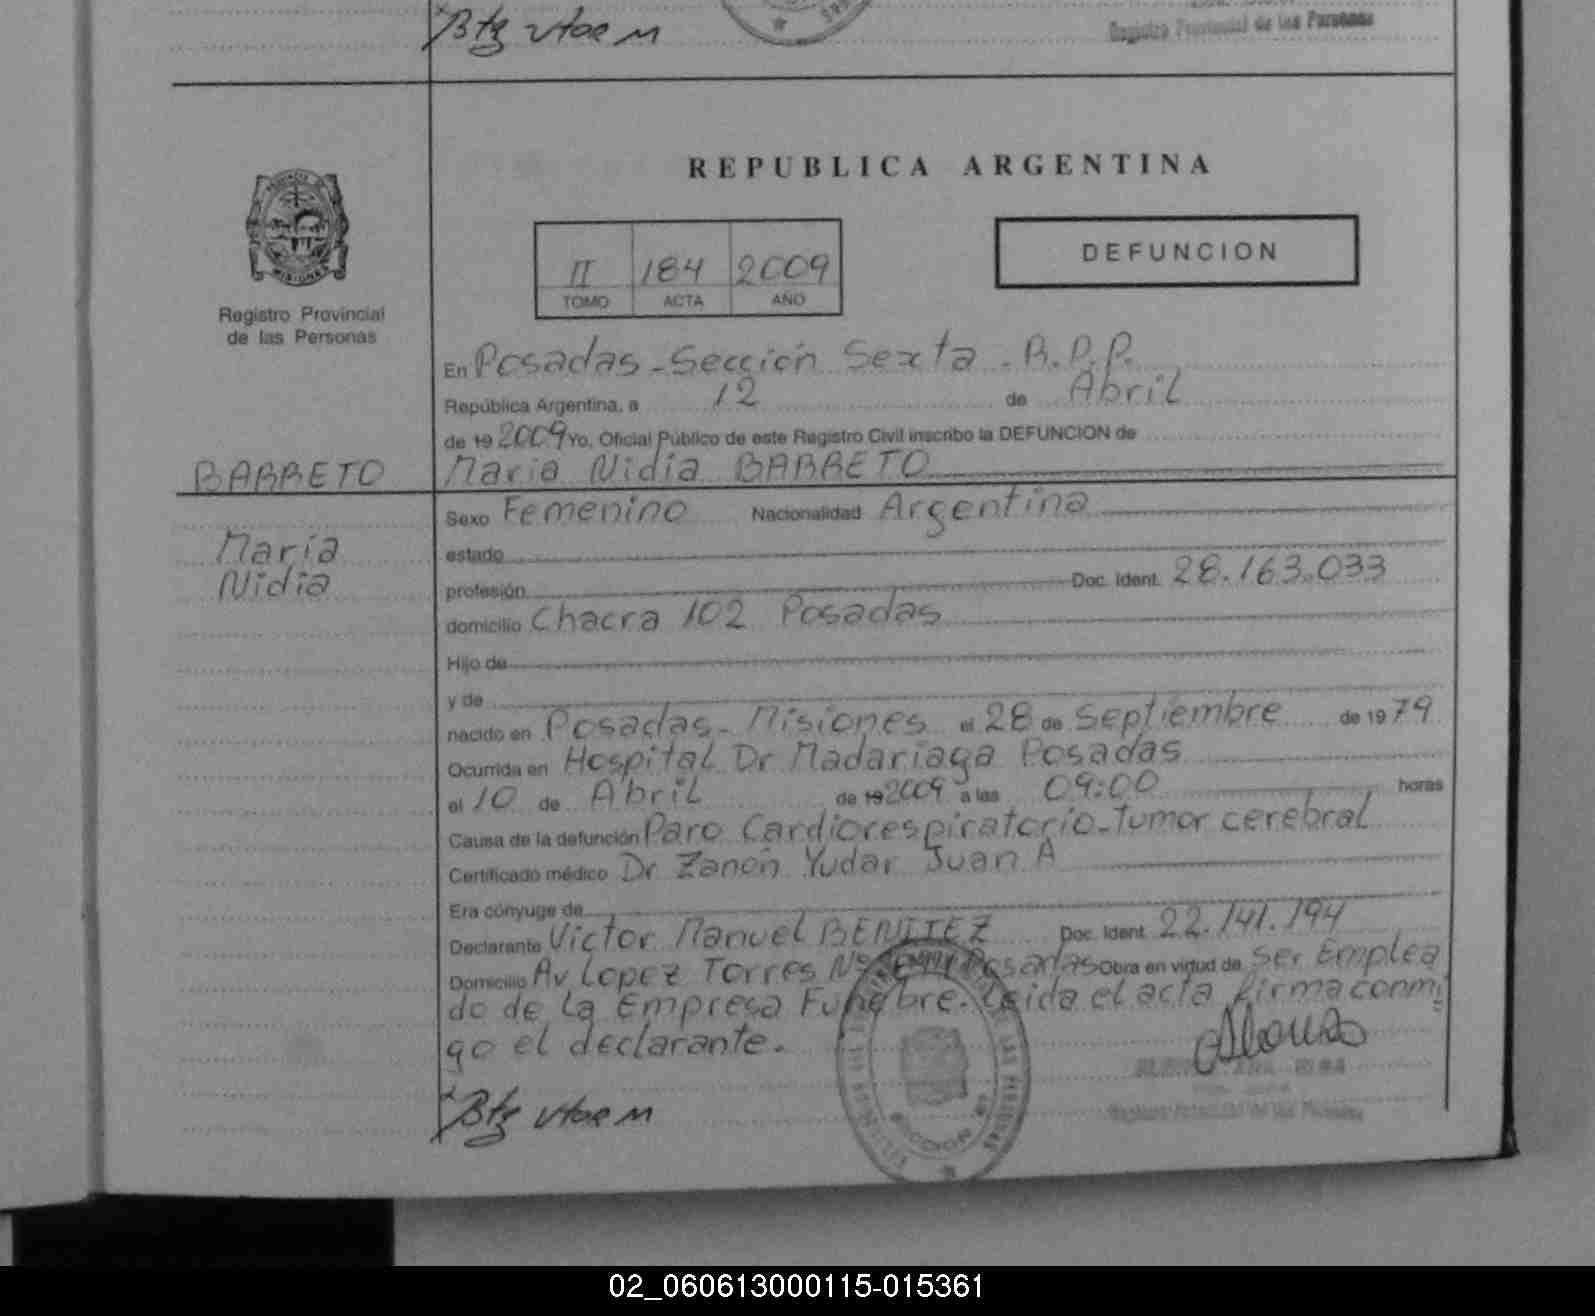 Btg vtor M
Registro Provincial de las Personas
REPUBLICA ARGENTINA
PROVINCIA DE
MISIONES
Registro Provincial
de las Personas
II 184 2009
TOMO ACTA AÑO
DEFUNCION
En Posadas - Sección Sexta - R.P.P.
República Argentina, a 12 de Abril
de 19 2009 Yo, Oficial Público de este Registro Civil inscribo la DEFUNCION de
BARRETO Maria Nidia BARRETO
Sexo Femenino Nacionalidad Argentina
María estado
Nidia profesión Doc. Ident. 28.163.033
domicilio Chacra 102 Posadas
Hijo de
y de
nacido en Posadas - Misiones el 28 de Septiembre de 1979
Ocurrida en Hospital Dr Madariaga Posadas
el 10 de Abril de 19 2009 a las 09:00 horas
Causa de la defunción Paro Cardiorespiratorio - Tumor cerebral
Certificado médico Dr Zanón Yudar Juan A
Era cónyuge de
Declarante Victor Manuel BENITEZ Doc. Ident. 22.141.194
Domicilio Av Lopez Torres Nº Posadas Obra en virtud de Ser Emplea
do de La Empresa Funebre. Leida el acta firma conmi
go el declarante.
Btg vtor M
02_060613000115-015361